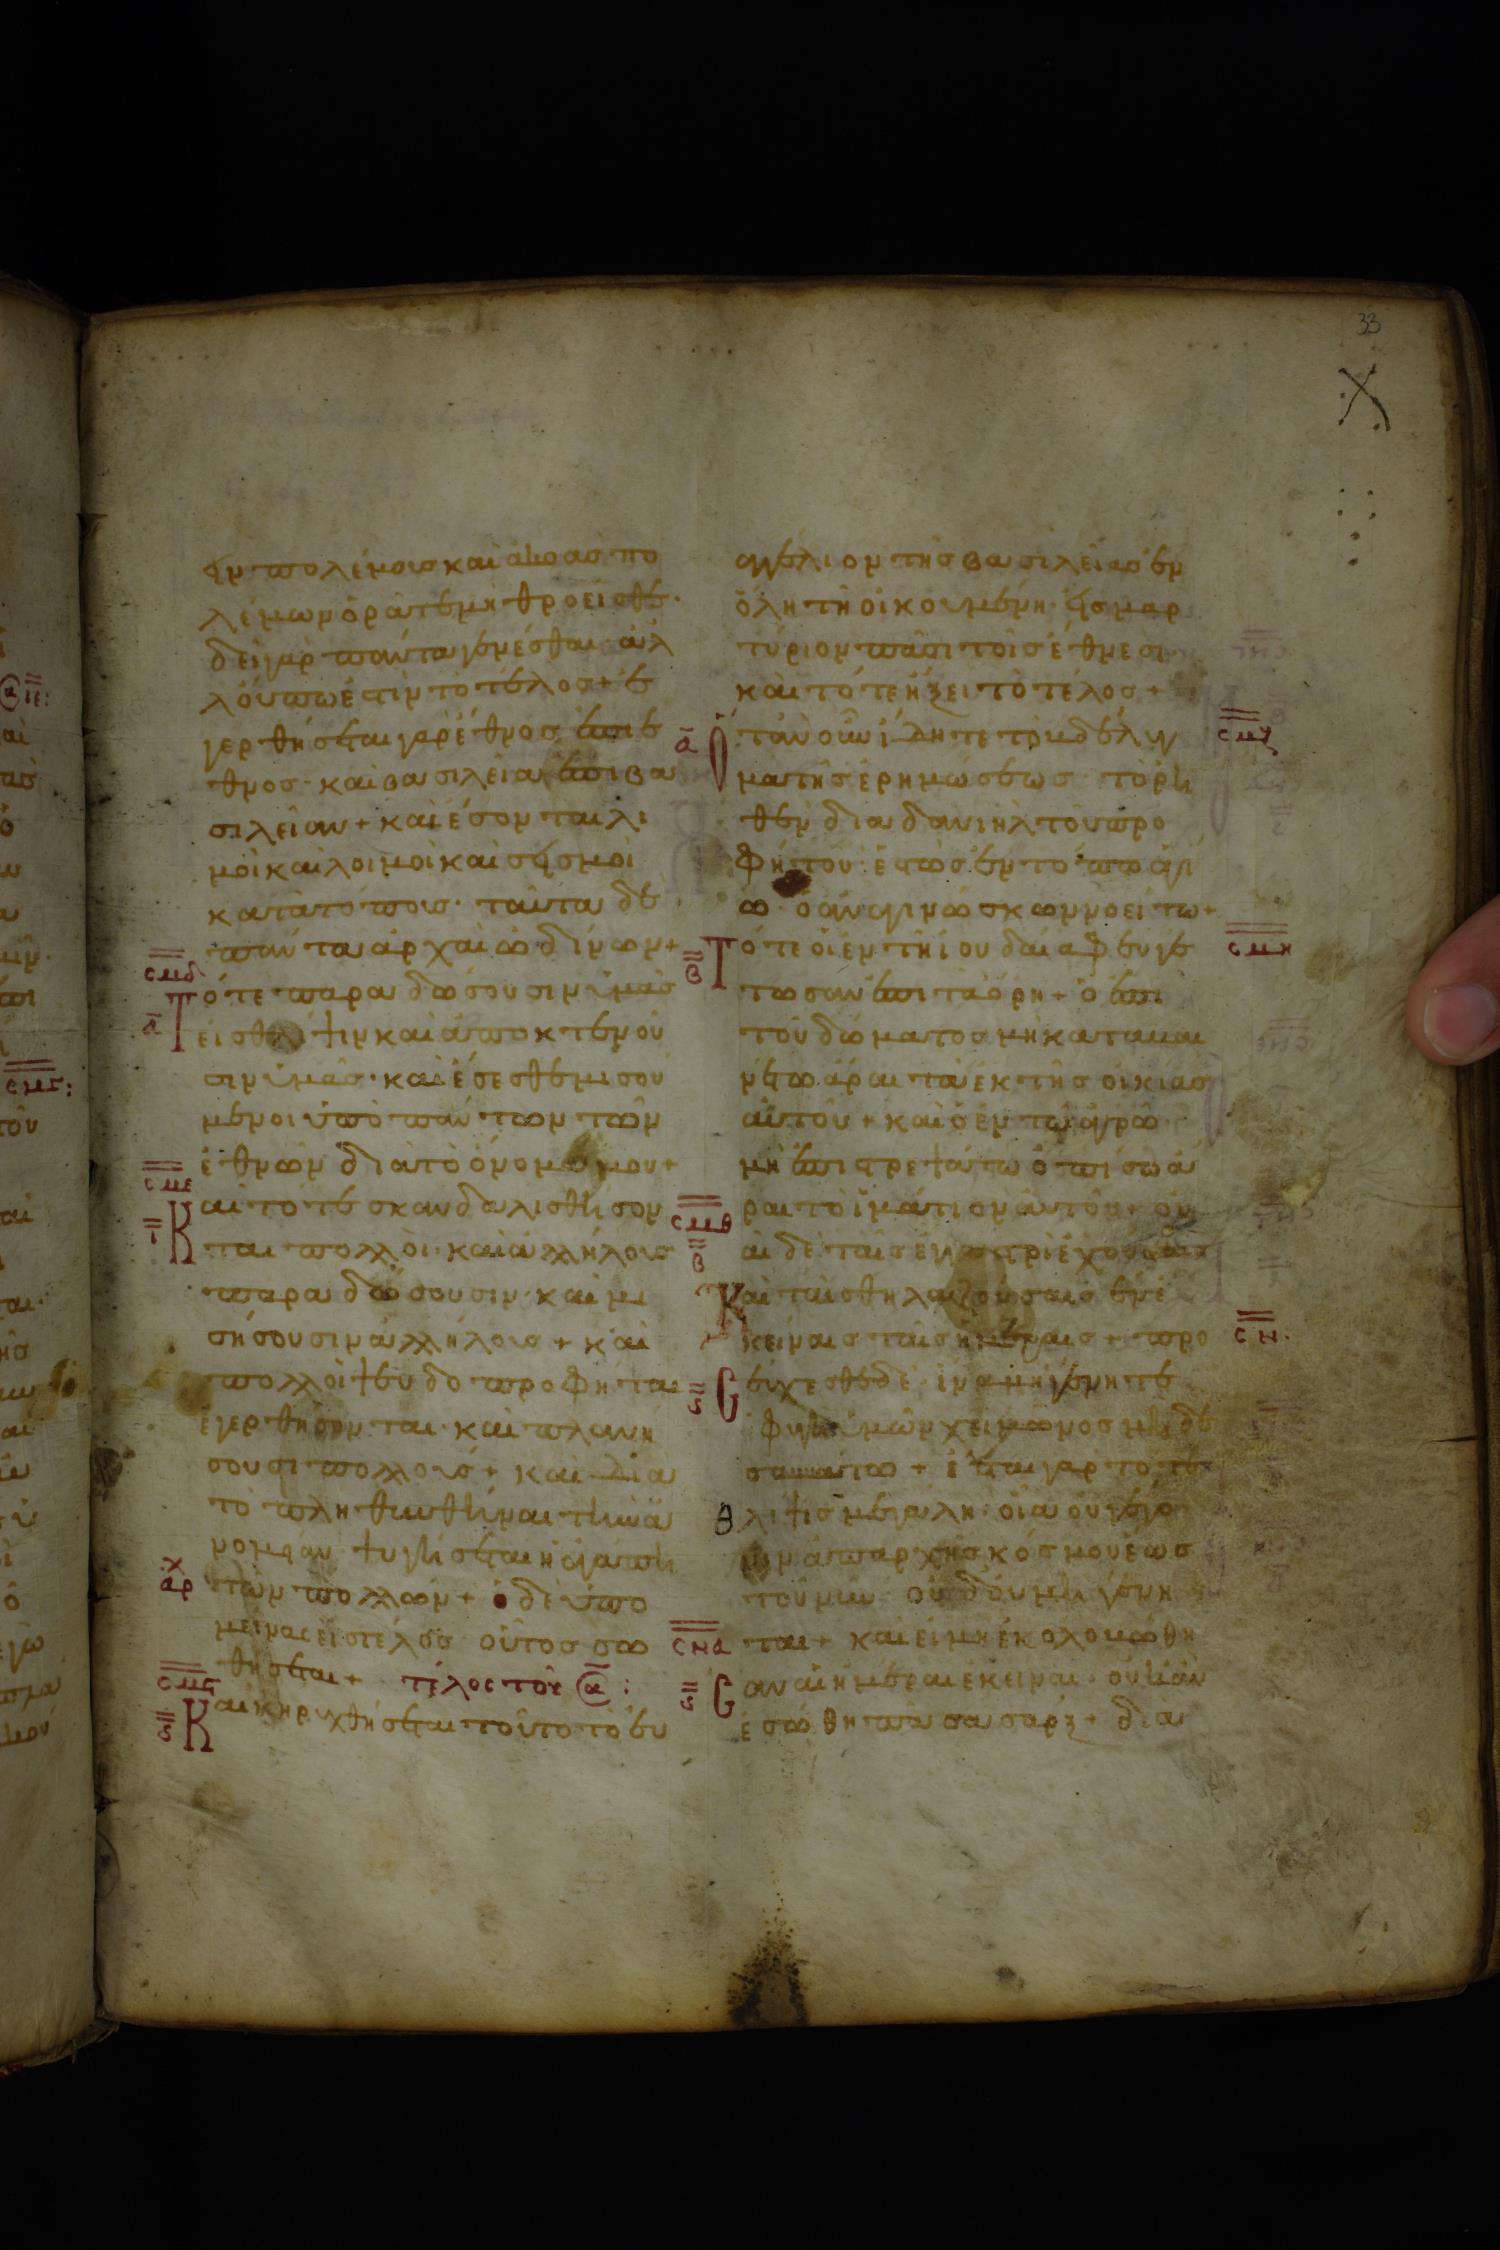 33
ειν πολέμους καὶ ἀκοὰς πο
λέμων ὁρᾶτε μὴ θροεῖσθε·
δεῖ γὰρ πάντα γενέσθαι ἀλ
λ' οὔπω ἐστὶν τὸ τέλος + ἐ
γερθήσεται γὰρ ἔθνος ἐπὶ ἔ
θνος· καὶ βασιλεία ἐπὶ βα
σιλείαν + καὶ ἔσονται λι
μοὶ καὶ λοιμοὶ καὶ σεισμοὶ
κατὰ τόπους· ταῦτα δὲ
πάντα ἀρχαὶ ὠδίνων +
σμδ
Τότε παραδώσουσιν ὑμᾶς
εἰς θλίψιν καὶ ἀποκτενοῦ
σιν ὑμᾶς· καὶ ἔσεσθε μισού
μενοι ὑπὸ πάντων τῶν
ἐθνῶν διὰ τὸ ὄνομά μου +
σμε
Καὶ τότε σκανδαλισθήσον
ται πολλοὶ· καὶ ἀλλήλους
παραδώσουσιν· καὶ μι
σήσουσιν ἀλλήλους + καὶ
πολλοὶ ψευδοπροφῆται
ἐγερθήσονται· καὶ πλανή
σουσι πολλούς + καὶ διὰ
τὸ πληθυνθῆναι τὴν ἀ
νομίαν ψυγήσεται ἡ ἀγάπη
ἀρχ
τῶν πολλῶν + ὁ δὲ ὑπο
μείνας εἰς τέλος οὗτος σω
θήσεται + τέλος τοῦ α :
σμς
Καὶ κηρυχθήσεται τοῦτο τὸ εὐ
αγγέλιον τῆς βασιλείας ἐν
ὅλη τῆ οἰκουμένη· εἰς μαρ
τύριον πᾶσι τοῖς ἔθνεσι·
καὶ τότε ἥξει τὸ τέλος +
Ὅταν οὖν ἴδητε τὸ βδέλυγ
σμζ
μα τῆς ἐρημώσεως τὸ ῥη
θὲν διὰ δανιὴλ τοῦ προ
φήτου· ἑστὼς ἐν τόπω ἁγί
ω· ὁ ἀναγινώσκων νοείτω +
σμη
Τότε οἱ ἐν τῆ ἰουδαία φευγέ
τωσαν ἐπὶ τὰ ὄρη + ὁ ἐπὶ
τοῦ δώματος μὴ καταβαι
νέτω ἆραι τὰ ἐκ τῆς οἰκίας
αὐτοῦ + καὶ ὁ ἐν τῶ ἀγρῶ
μὴ ἐπιστρεψάτω ὀπίσω ἆ
ραι τὸ ἱμάτιον αὐτοῦ + οὐ
σμθ
αὶ δὲ ταῖς ἐν γαστρὶ ἐχούσαις
Καὶ ταῖς θηλαζούσαις ἐν ἐ
κείναις ταῖς ἡμέραις + προ
σν
εύχεσθε δὲ ἵνα μὴ γένητε
ἡ φυγὴ ὑμῶν χειμῶνος μηδὲ
σαββάτω + ἔσται γὰρ τότε
θλίψις μεγάλη· οἵα οὐ γέγο
νεν ἀπ' ἀρχῆς κόσμου ἕως
τοῦ νῦν οὐδ' οὐ μὴ γένη
ται + καὶ εἰ μὴ ἐκολοβώθη
σνα
σαν αἱ ἡμέραι ἐκεῖναι· οὐκ ἂν
ἐσώθη πᾶσα σάρξ + διὰ